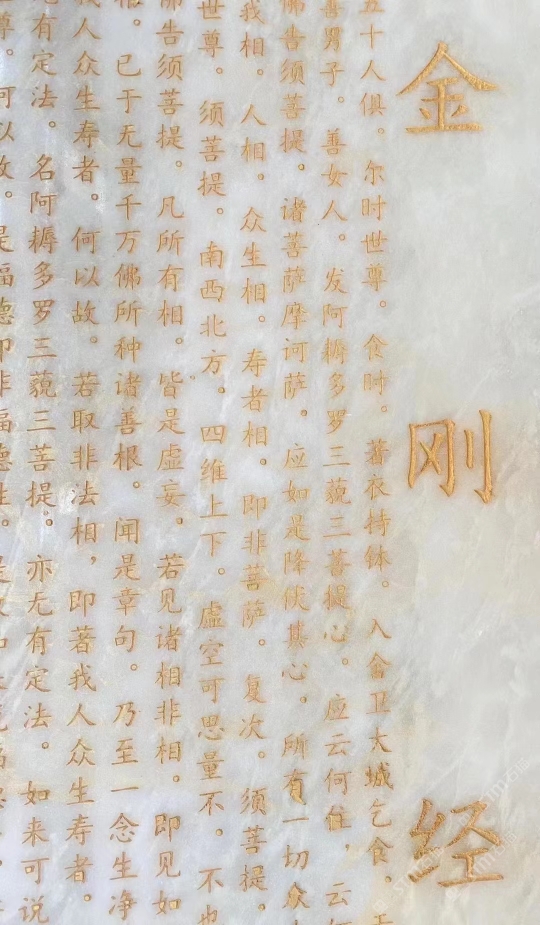 金刚经
五十人俱。尔时世尊。食时。著衣持钵。入舍卫大城乞食。
善男子。善女人。发阿耨多罗三藐三菩提心。应云何住,云
佛告须菩提。诸菩萨摩诃萨。应如是降伏其心。所有一切众
我相。人相。众生相。寿者相。即非菩萨。复次。须菩提。
世尊。须菩提。南西北方。四维上下。虚空可思量不。不也
佛告须菩提。凡所有相。皆是虚妄。若见诸相非相。即见如
相。已于无量千万佛所种诸善根。闻是章句。乃至一念生净
我人众生寿者。何以故。若取非法相,即著我人众生寿者。
有定法。名阿耨多罗三藐三菩提。亦无有定法。如来可说
尊。何以故。是福德即非福德性。是